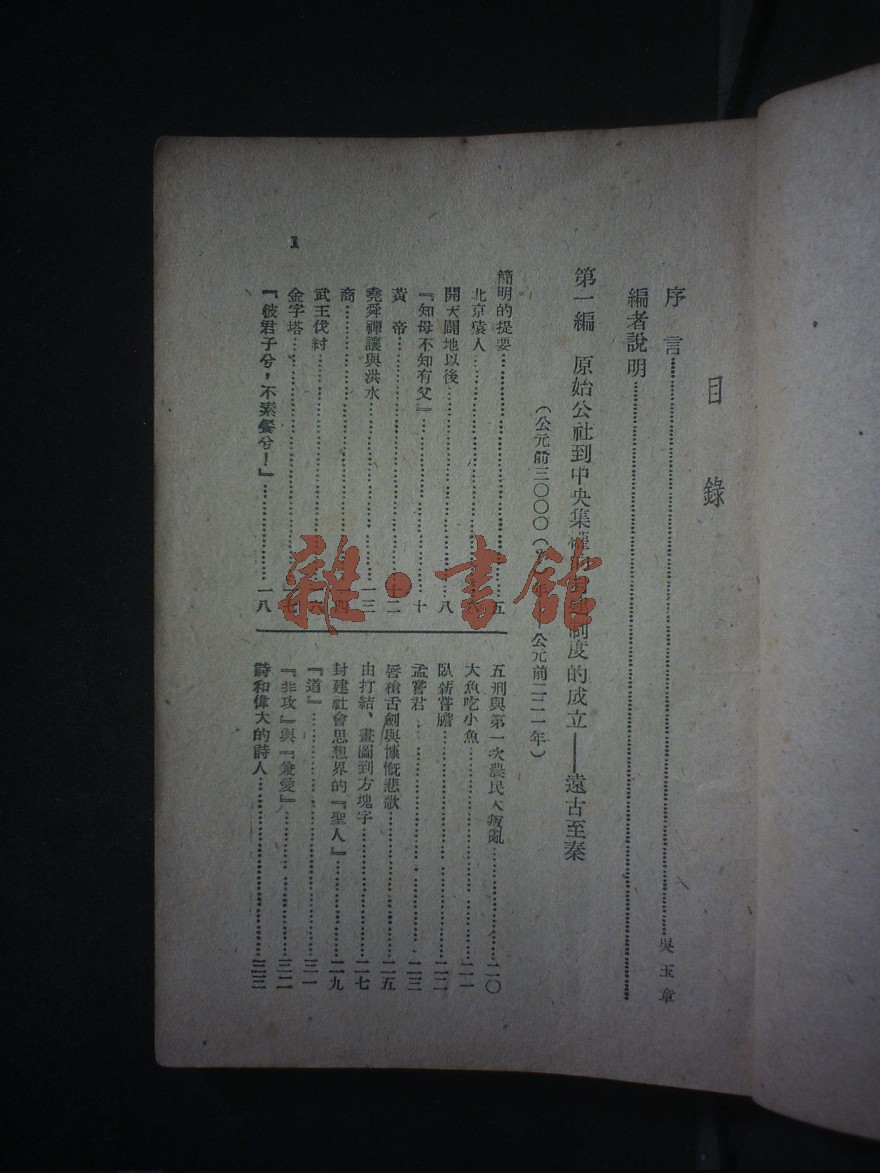 目錄
序言……吳玉章
編者說明……
第一編　原始公社到中央集權的封建制度的成立——遠古至秦
（公元前三〇〇〇（ 公元前二二一年）
簡明的提要……五
北京猿人……
開天闢地以後……八
『知母不知有父』……十
黃帝……十二
堯舜禪讓與洪水……一三
商……一四
武王伐紂……
金字塔……一七
『彼君子兮，不素餐兮！』……一八
五刑與第一次農民大叛亂……二〇
大魚吃小魚……二一
臥薪嘗膽……二二
孟嘗君……二三
唇槍舌劍與慷慨悲歌……二五
由打結、畫圖到方塊字……二七
封建社會思想界的『聖人』……二九
『道』……三一
『非攻』與『兼愛』……三二
詩和偉大的詩人……三三
1
雜·書館